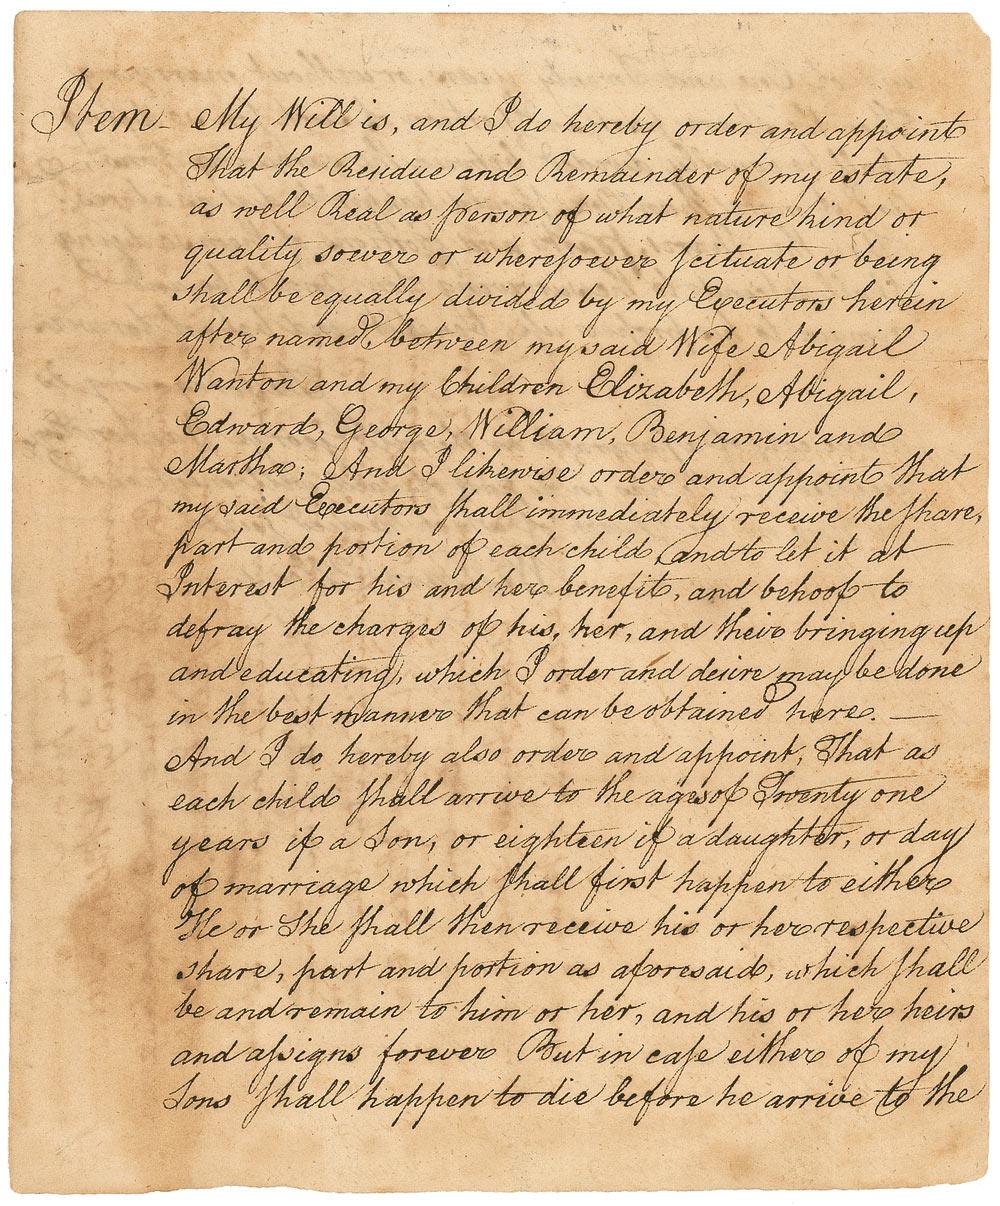 Item - My Will is, and I do hereby order and appoint
That the Residue and Remainder of my estate,
as well Real as person of what nature kind or
quality soever or wheresoever scituate or being
shall be equally divided by my Executors herein
after named, between my said Wife Abigail
Wanton and my Children Elizabeth, Abigail,
Edward, George, William, Benjamin and
Martha; And I likewise order and appoint that
my said Executors shall immediately receive the share,
part and portion of each child and to let it at
Interest for his and her benefit, and behoof to
defray the charges of his, her, and their bringing up
and educating, which I order and desire may be done
in the best manner that can be obtained here. —
And I do hereby also order and appoint, That as
each child shall arrive to the ages of Twenty one
years if a Son, or eighteen if a daughter, or day
of marriage which shall first happen to either
He or She shall then receive his or her respective
share, part and portion as aforesaid, which shall
be and remain to him or her, and his or her heirs
and assigns forever But in case either of my
Sons shall happen to die before he arrive to the